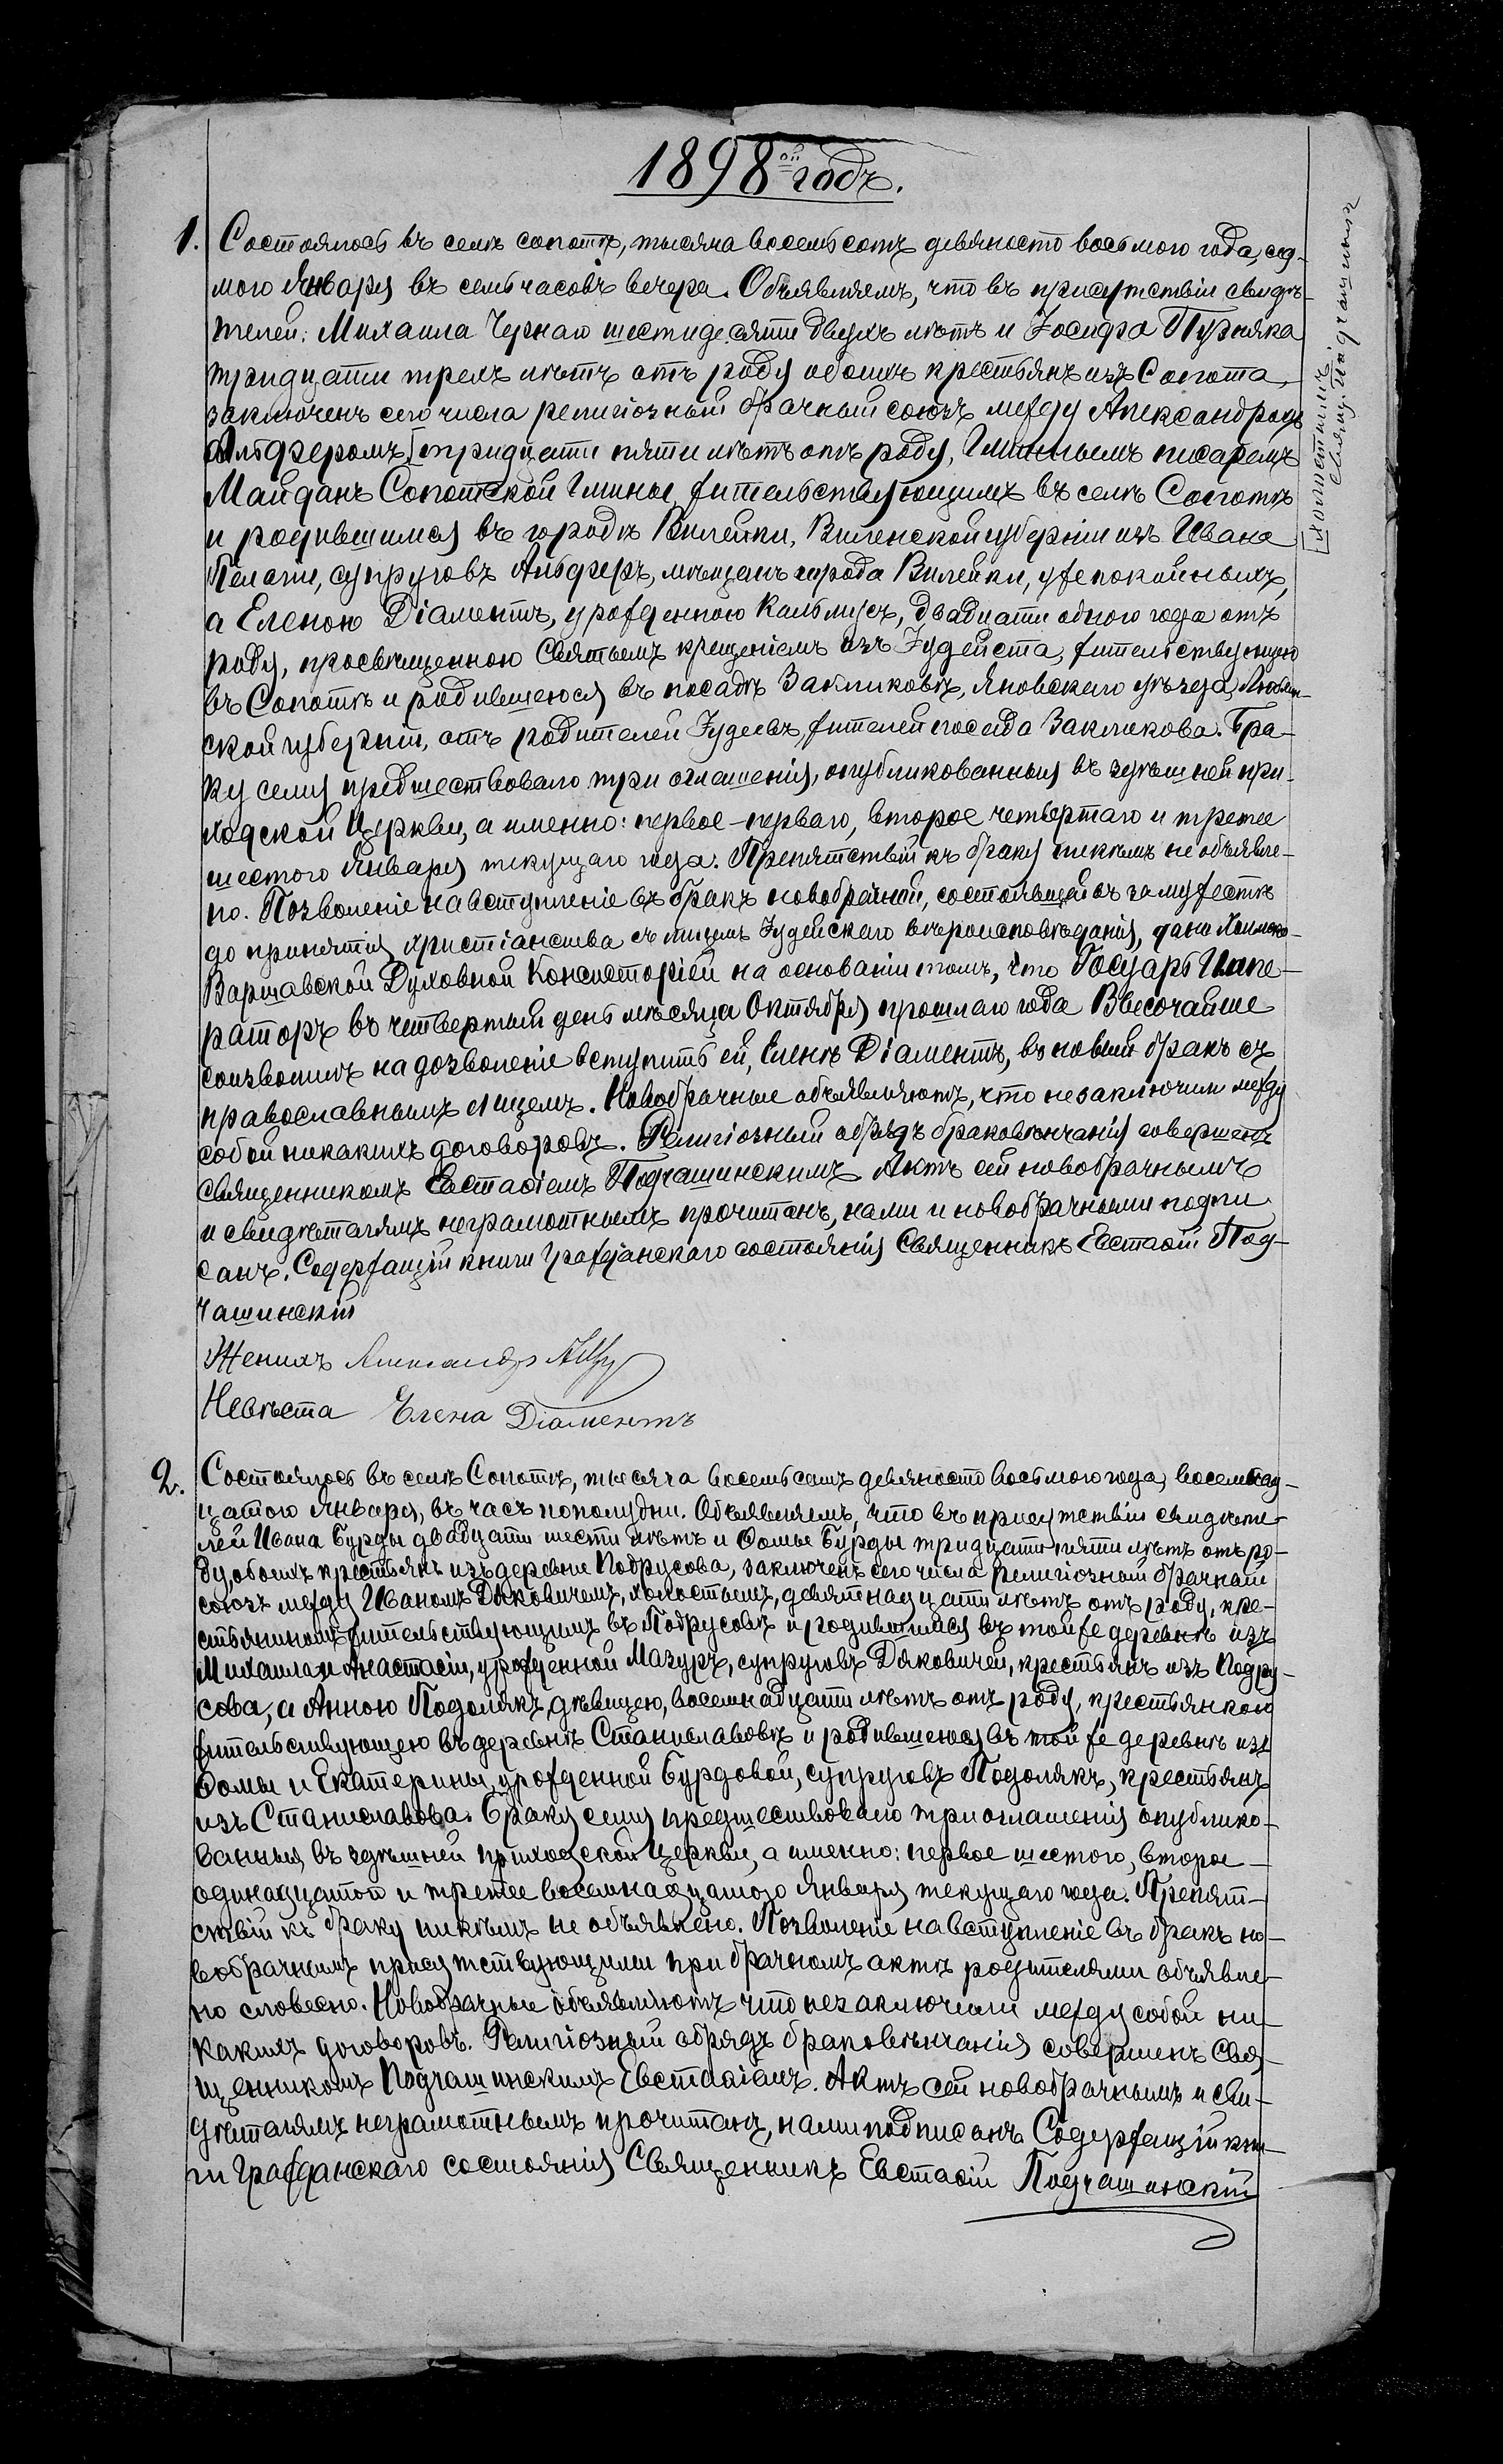 1898ой годъ.
1. Состоялось въ селѣ Сопотѣ, тысяча восемьсотъ девяносто восьмого года, сед-
мого Января въ семь часовъ вечера. Объявляемъ, что въ присутствіи свидѣ-
телей: Михаила Чернаго шестидесяти двухъ лѣтъ и Іосифа Пурняка
тридцати трехъ лѣтъ отъ роду обоихъ крестьянъ изъ Сопота,
заключенъ сего числа религіозный брачный союзъ между Александромъ
Альферомъ, [тридцати пяти лѣтъ отъ роду, Гминнымъ писаремъ
Майданъ Сопотской Гмины, жительствующимъ въ селѣ Сопотѣ
и родившимся въ городѣ Вилейки, Виленской губерніи изъ Ивана
Пелагіи, супруговъ Альферъ, мѣщанъ города Вилейки, уже покойныхъ,
а Еленою Діаментъ, урожденною Кальмусъ, двадцати одного года отъ
роду, просвѣщенною Святымъ крещеніемъ изъ Іудейста, жительствующею
въ Сопотѣ и родившеюся въ посадѣ Закликовѣ, Яновскаго уѣзда, Люблин-
ской губерніи, отъ родителей Іудеевъ, жителей посада Закликова. Бра-
ку сему предшествовало три оглашенія, опубликованныя въ здѣшней при-
ходской Церкви, а именно: первое – перваго, второе четвертаго и третее
шестого Января текущаго года. Препятствій къ браку никѣмъ не объявле-
но. Позволеніе на вступленіе въ бракъ новобрачной, состоявшей въ замужествѣ
до принятія христіанства съ лицемъ Іудейскаго вѣроисповѣданія, дано Холмско-
Варшавской Духовной Консисторіей на основаніи томъ, что Госуарь Импе-
раторъ въ четвертый день мѣсяца Октября прошлаго года Высочайше
соизволилъ на дозволеніе вступить ей, Еленѣ Діаментъ, въ новый бракъ съ
православнымъ лицемъ. Новобрачные объявляютъ, что незаключили между
собой никакихъ договоровъ. Религіозный обрядъ браковѣнчанія совершенъ
священникомъ Евстаѳіемъ Подчашинскимъ Актъ сей новобрачнымъ
и свидѣтелямъ неграмотнымъ прочитанъ, нами и новобрачными подпи
санъ. Содержащій книги гражданскаго состоянія Священникъ Евстаѳій Под-
чашинскій
Женихъ Александръ
Невѣста Елена Діаментъ
[холостымъ
Священ. Подчашинскій
2. Состоялось въ селѣ Сопотѣ, тысяча восемьсотъ девяносто восьмого года, восемнад-
цатого Января, въ часъ пополудни. Объявляемъ, что въ присутствіи свидѣте-
лей Ивана Бурды двадцати шести лѣтъ и Ѳомы Бурды тридцати пяти лѣтъ отъ ро-
ду, обоихъ крестьянъ изъ деревни Подрусова, заключенъ сего числа религіозный брачный
союзъ между Иваномъ Дяковичемъ, холостымъ, девятнадцати лѣтъ отъ роду, кре-
стьяниномъ жительствующимъ въ Подрусовѣ и родившимся въ той же деревнѣ изъ
Михаила и Анастасіи, урожденной Мазуръ, супруговъ Дяковичей, крестьянъ изъ Подру-
сова, а Анною Подолякъ, дѣвицею, восемнадцати лѣтъ отъ роду, крестьянкою
жительствующею въ деревнѣ Станиславовѣ и родившеюся въ той же деревнѣ изъ
Ѳомы и Екатерины, урожденной Бурдовой, супруговъ Подолякъ, крестьянъ
изъ Станиславова. Браку сему предшествовало три оглашенія опублико-
ванныя въ здѣшней приходской Церкви, а именно: первое шестого, второе –
одинадцатого и третее восемнадцатого Января текущаго года. Препят-
ствій къ браку никѣмъ не объявлено. Позволеніе на вступленіе въ бракъ но-
вобрачнымъ присутствующими при брачномъ актѣ родителями объявле-
но словесно. Новобрачные объявляютъ что незаключили между собой ни-
какихъ договоровъ. Религіозный обрядъ браковѣнчанія совершенъ Свя-
щенникомъ Подчашинскимъ Евстаѳіемъ. Актъ сей новобрачнымъ и сви-
дѣтелямъ неграмотнымъ прочитанъ, нами подписанъ Содержащій кни-
ги гражданскаго состоянія Священникъ Евстаѳій Подчашинскій